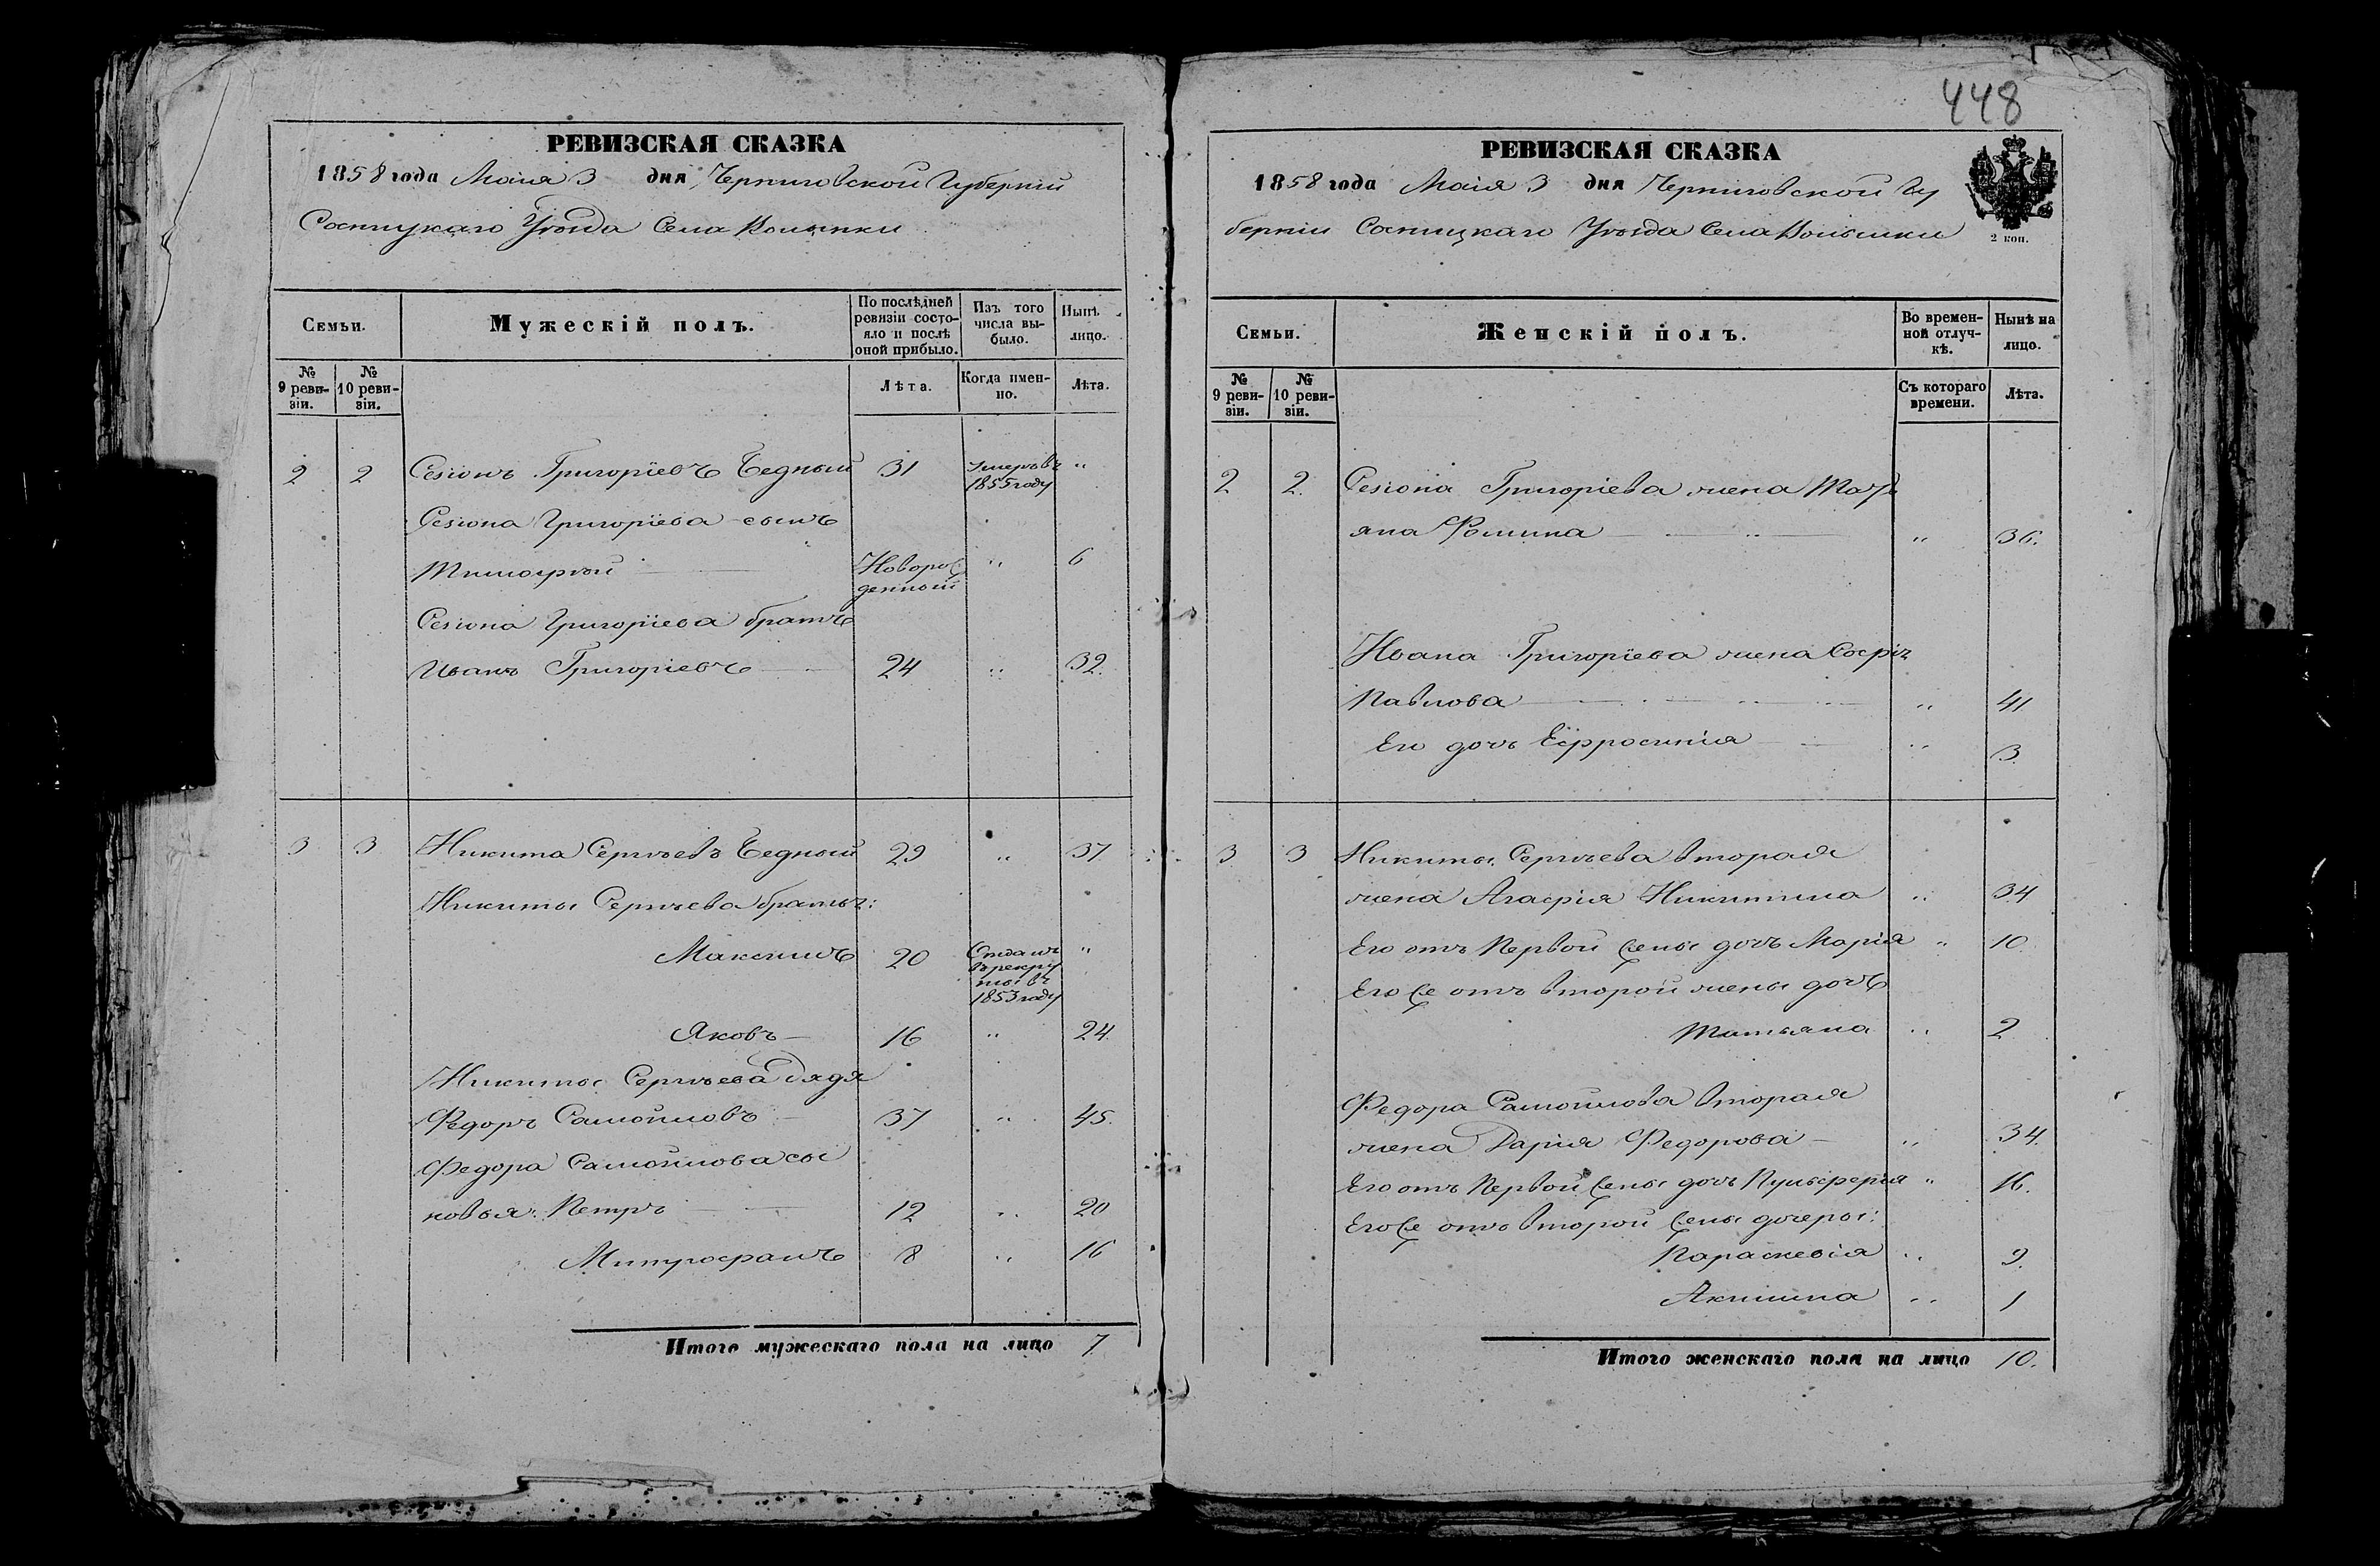 448
РЕВИЗСКАЯ СКАЗКА
1858 года Маія 3 дня Черниговской Губерніи
Сосницкаго Уѣзда Села Волынки
Семьи.
Мужескій полъ.
По послѣдней ревизіи состояло и послѣ оной прибыло.
Изъ того числа выбыло.
Нынѣ лицо.
№ 9 ревизіи.
№ 10 ревизіи.
Лѣта.
Когда именно.
Лѣта.
2 2 Григоріевъ Бедный 31 Умеръ въ 1855 году "
Григоріева сынъ
Тимофѣй Новорожденный " 6
Григоріева братъ
Иванъ Григоріевъ 24 " 32.
3 3 Никита Сергѣевъ Бедный 29 " 37
Никиты Сергѣева братья:
Максимъ 20 Отданъ въ рекруты въ 1853 году "
Яковъ 16 " 24.
Никиты Сергѣева дядя
Федоръ Самойловъ 37 " 45.
Федора Самойлова сы
новья: Петръ 12 " 20
Митрофанъ 8 " 16
Итого мужескаго пола на лицо 7
РЕВИЗСКАЯ СКАЗКА
1858 года Маія 3 дня Черниговской Гу
берніи Сосницкаго Уѣзда Села Волынки
2 коп.
Семьи.
Женскій полъ.
Во временной отлучкѣ.
Нынѣ на лицо.
№ 9 ревизіи.
№ 10 ревизіи.
Съ котораго времени.
Лѣта.
2 2. Григоріева жена Марь
яна Фомина " 36.
Ивана Григоріева жена Софія
Павлова " 41
Его дочь Ефросинія " 3
3 3 Никиты Сергѣева вторая
жена Агафія Никитина " 34
Его отъ первой жены дочь Марія " 10
Его же отъ второй жены дочь
Татьяна " 2
Федора Самойлова вторая
жена Дарія Федорова " 34.
Его отъ первой жены дочь Пульферія " 16.
Его же отъ второй жены дочеры:
Параскевія " 9.
Акилина " 1
Итого женскаго пола на лицо 10.